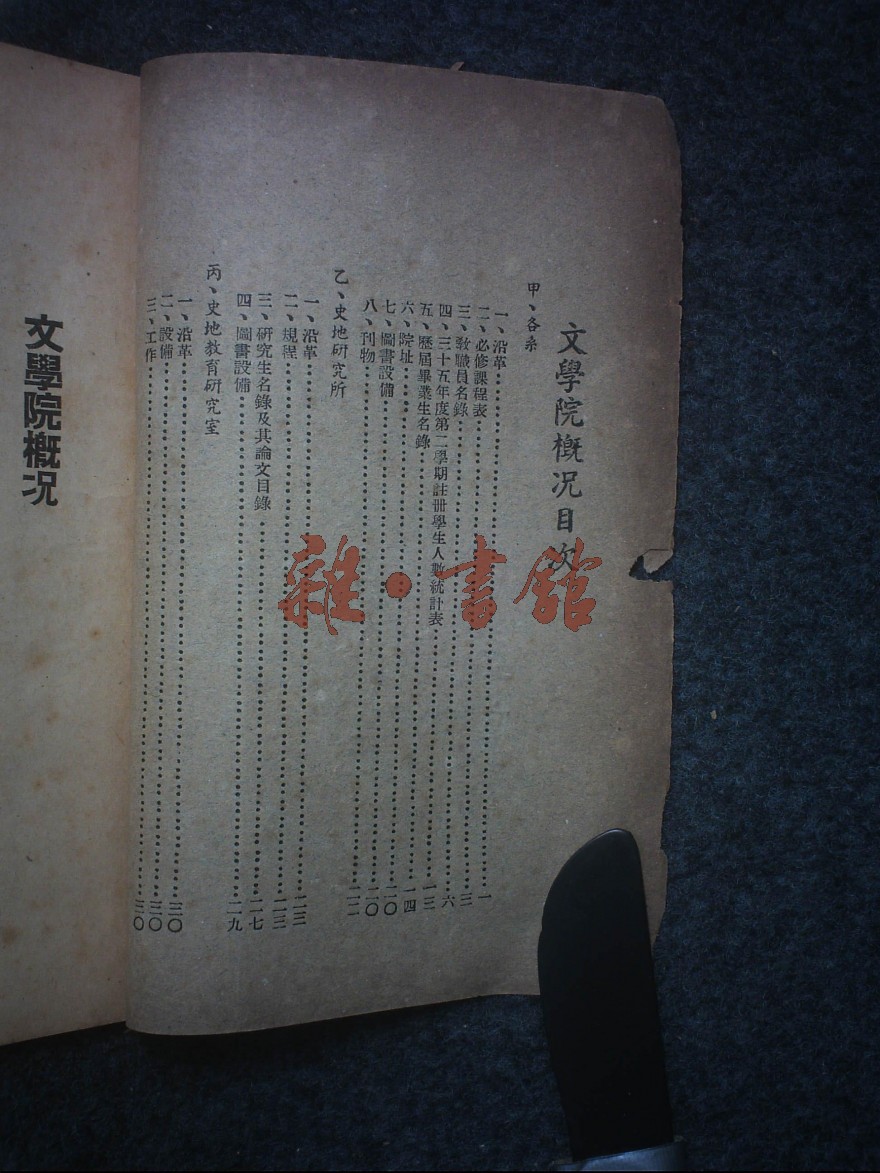 文學院槪况目次
甲、各系
一、沿革……一
二、必修課程表……三
三、教職員名錄……六
四、三十五年度第二學期註冊學生人數統計表……一三
五、歷屆畢業生名錄……一四
六、院址……二〇
七、圖書設備……二〇
八、刊物……二二
乙、史地研究所
一、沿革……二三
二、規程……二三
三、研究生名錄及其論文目錄……二七
四、圖書設備……二九
丙、史地教育研究室
一、沿革……三〇
二、設備……三〇
三、工作……三〇
文學院槪况
雜·書館